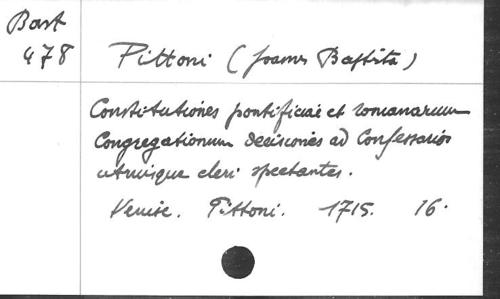 Bart
478
Pittoni (Joannes Baptista)
Constitutiones pontificiae et romanarum
Congregationum decisiones ad Confessarios
utriusque cleri spectantes.
Venise. Pittoni. 1715. 16.